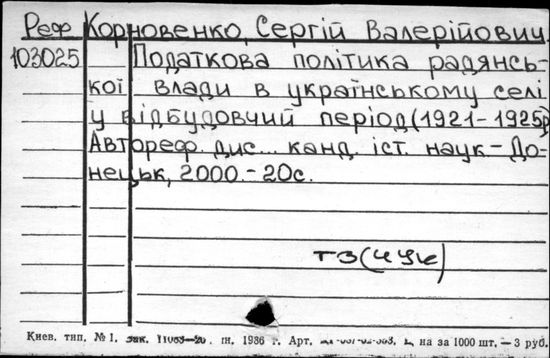 Реф Корновенко, Сергій Валерійович.
103025 Податкова політика радянсь-
кої влади в українському селі
у відбудовчий період (1921-1925р)
Автореф. дис... канд. іст. наук.-До-
нецьк, 2000.-20с.
Т3(4Ук)
Киев. тип. №1. зак. 11063—20. 1936 г. Арт. на за 1000 шт. — 3 руб.